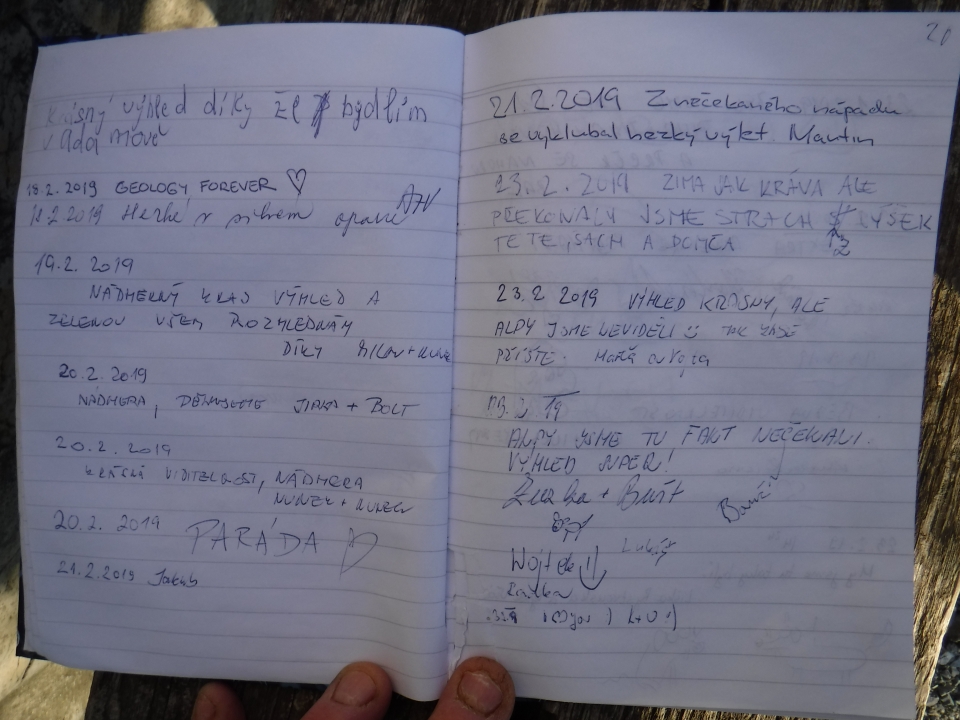 Krásný výhled díky že bydlím
v Adamově
18.2. 2019 GEOLOGY FOREVER ♡
18.2.2019 Hezké v
19.2. 2019
NÁDHERNÝ KRAJ VÝHLED A
ZELENOU VŠEM ROZHLEDNÁM
DÍKY
20.2. 2019
NÁDHERA, DĚKUJEME JIRKA + BOLT
20.2. 2019
VIDITELNOST, NÁDHERA
20.2. 2019 PARÁDA
21.2.2019 Jakub
20
21.2.2019 Z nečekaného nápadu
se vyklubal hezký výlet. Martin
23.2. 2019 ZIMA JAK KRÁVA ALE
PŘEKONALY JSME STRACH Z VÝŠEK
TETE, SACH A DOMČA
23.2. 2019 VÝHLED KRÁSNÝ, ALE
ALPY JSME NEVIDĚLI :( TAK ZASE
PŘÍŠTĚ.
ALPY JSME TU FAKT NEČEKALI.
VÝHLED SUPER!
Zuzka + Bušt
Lukáš
Wojtek
Radka